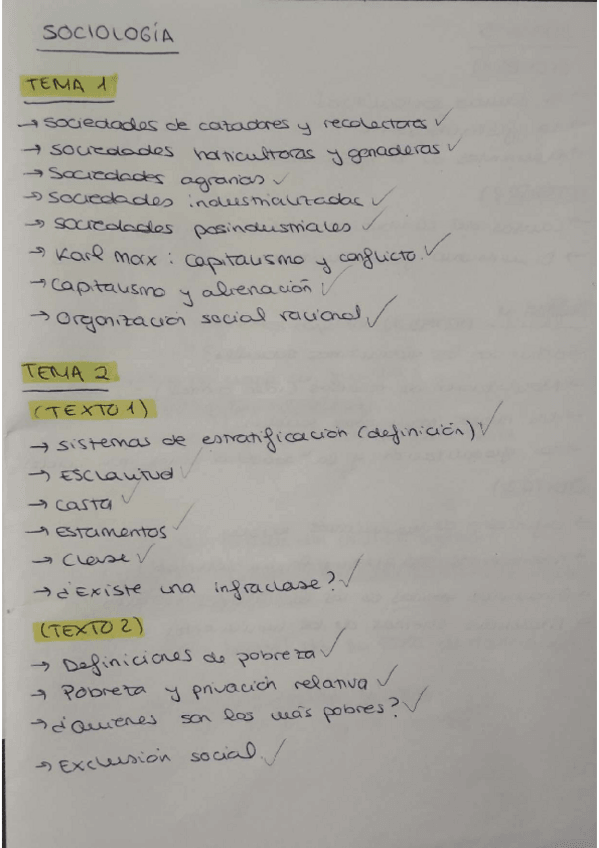 SOCIOLOGÍA
TEMA 1
→ Sociedades de cazadores y recolectores ✓
→ Sociedades horticultoras y ganaderas ✓
→ Sociedades agrarias ✓
→ Sociedades industrializadas ✓
→ Sociedades posindustriales ✓
→ Karl Marx: capitalismo y conflicto. ✓
→ Capitalismo y alienación ✓
→ Organización social racional ✓
TEMA 2
(TEXTO 1)
→ Sistemas de estratificación (definición) ✓
→ Esclavitud ✓
→ Casta ✓
→ Estamentos ✓
→ Clase ✓
→ ¿Existe una infraclase? ✓
(TEXTO 2)
→ Definiciones de pobreza ✓
→ Pobreza y privación relativa ✓
→ ¿Quienes son los más pobres? ✓
→ Exclusión social. ✓